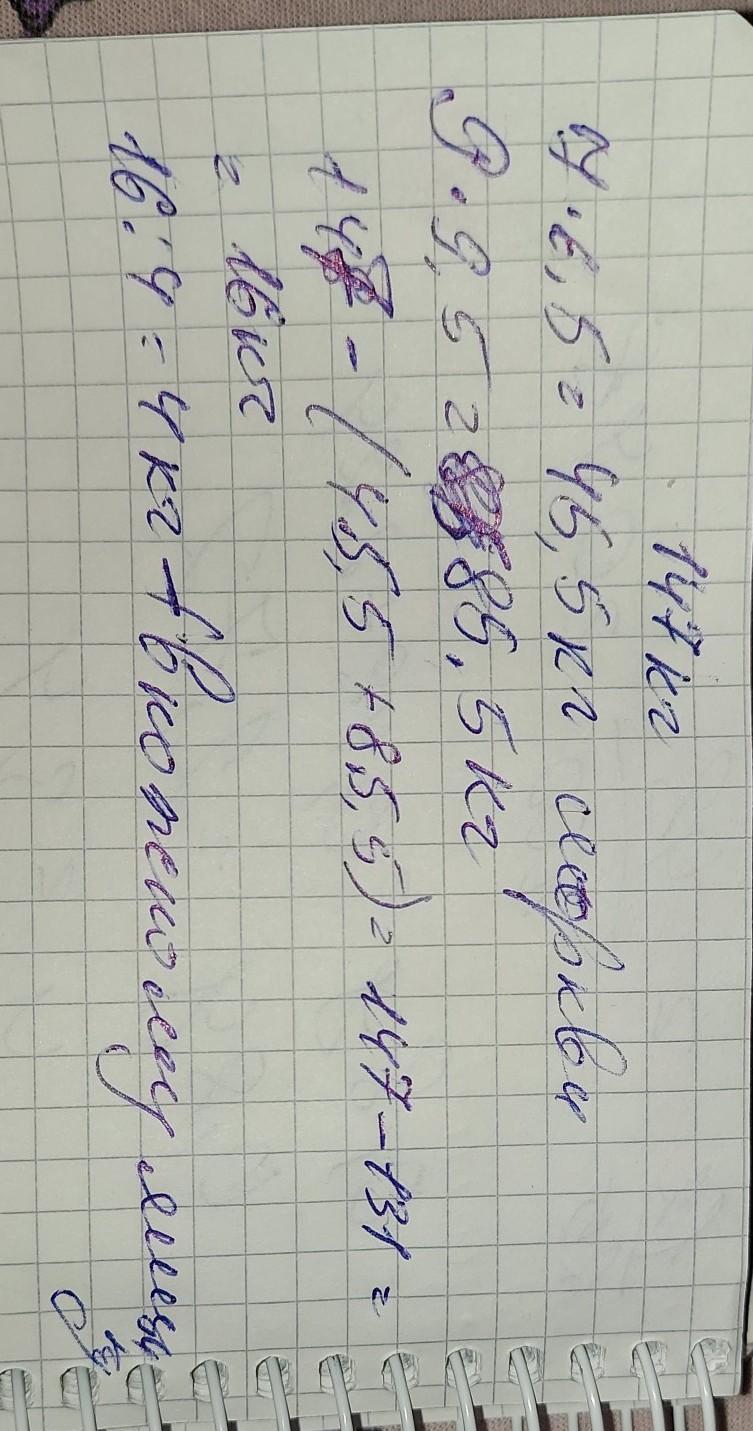 147кг
7·6,5=45,5кг моркви
9·9,5=85,5кг
147-(45,5+85,5)=147-131=
=16кг
16:4=4кг - в кожному мішку